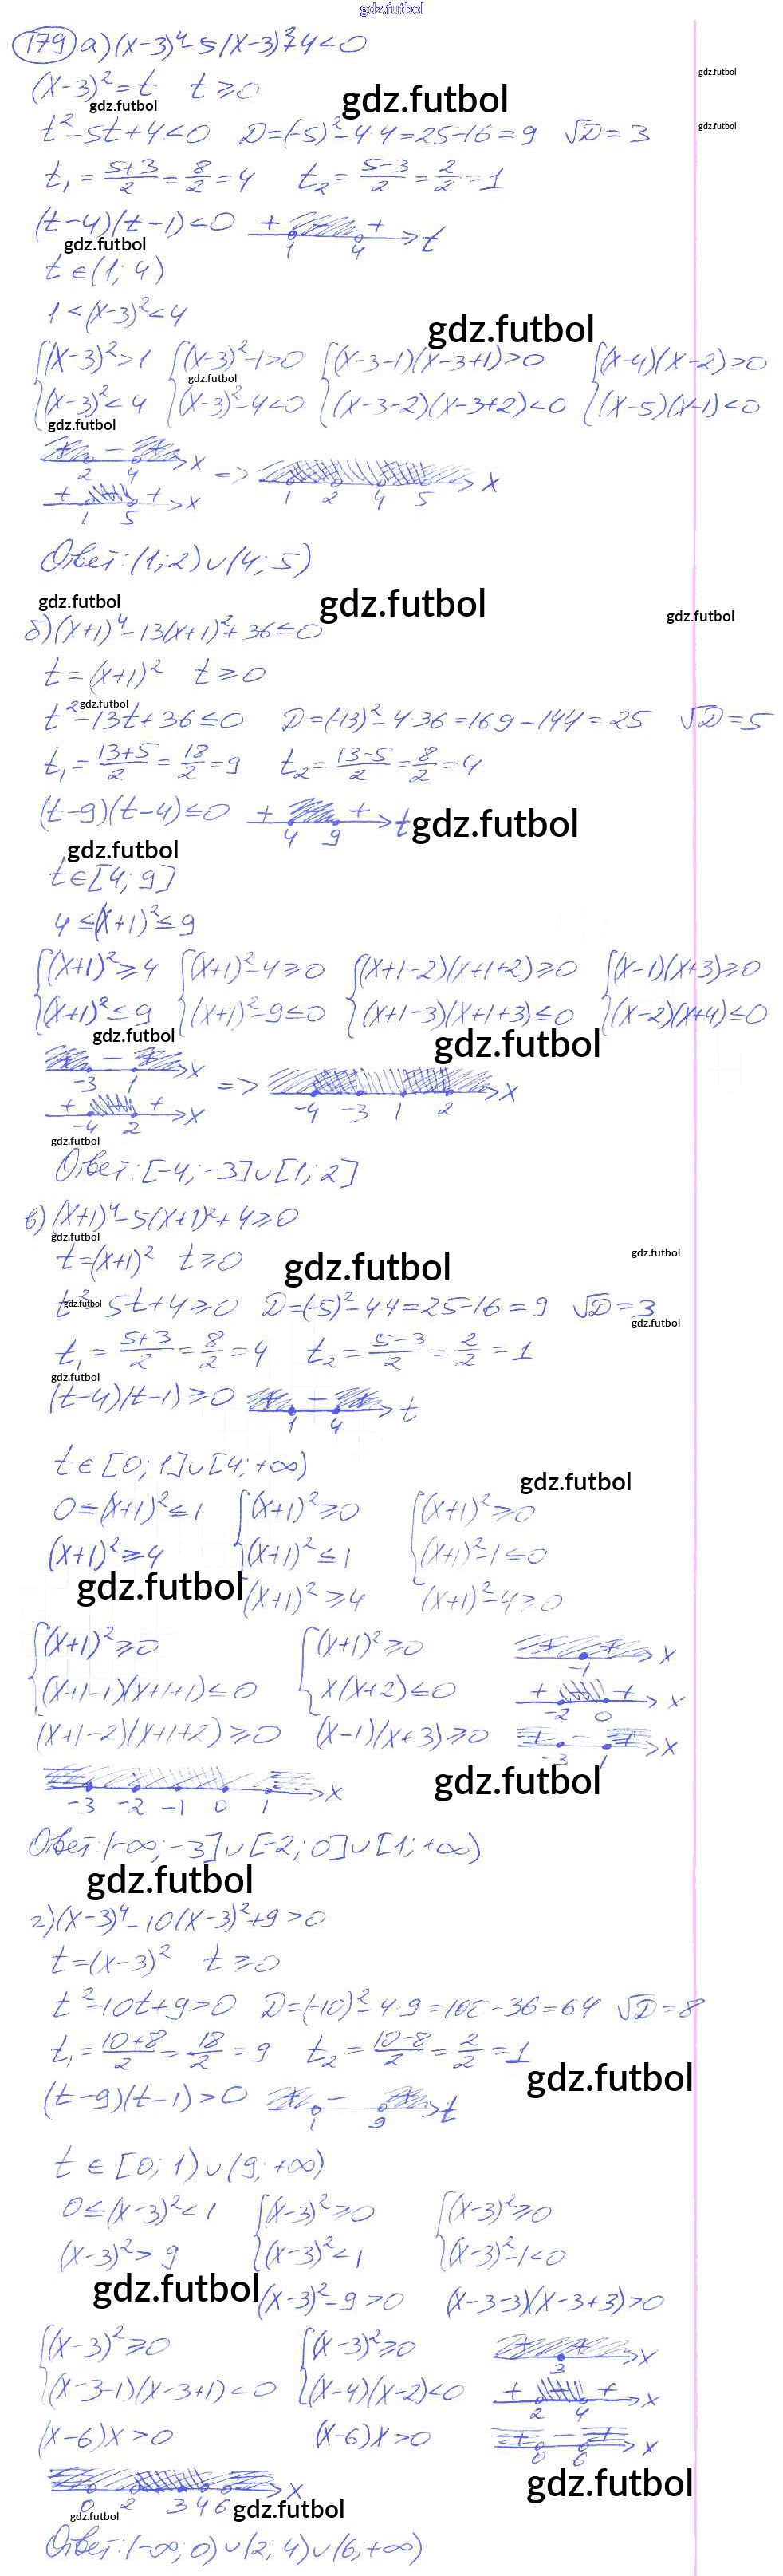 gdz.futbol
179 а) (x-3)⁴-5(x-3)²+4<0
gdz.futbol
(x-3)²=t t≥0
gdz.futbol
gdz.futbol
t²-5t+4<0 D=(-5)²-4·4=25-16=9 √D=3
gdz.futbol
t₁=(5+3)/2=8/2=4 t₂=(5-3)/2=2/2=1
(t-4)(t-1)<0 + + 1 4 t
gdz.futbol
t∈(1;4)
1<(x-3)²<4
gdz.futbol
{(x-3)²>1 {(x-3)²-1>0 {(x-3-1)(x-3+1)>0 {(x-4)(x-2)>0
gdz.futbol
{(x-3)²<4 {(x-3)²-4<0 {(x-3-2)(x-3+2)<0 {(x-5)(x-1)<0
gdz.futbol
+ - + 2 4 x
=> 1 2 4 5 x
+ + 1 5 x
Ответ: (1;2)∪(4;5)
gdz.futbol
gdz.futbol
gdz.futbol
б) (x+1)⁴-13(x+1)²+36≤0
t=(x+1)² t≥0
gdz.futbol
t²-13t+36≤0 D=(-13)²-4·36=169-144=25 √D=5
t₁=(13+5)/2=18/2=9 t₂=(13-5)/2=8/2=4
(t-9)(t-4)≤0 + + 4 9 t
gdz.futbol
gdz.futbol
t∈[4;9]
4≤(x+1)²≤9
{(x+1)²≥4 {(x+1)²-4≥0 {(x+1-2)(x+1+2)≥0 {(x-1)(x+3)≥0
{(x+1)²≤9 {(x+1)²-9≤0 {(x+1-3)(x+1+3)≤0 {(x-2)(x+4)≤0
gdz.futbol
gdz.futbol
+ - + -3 1 x
=> -4 -3 1 2 x
+ + -4 2 x
gdz.futbol
Ответ: [-4;-3]∪[1;2]
в) (x+1)⁴-5(x+1)²+4≥0
gdz.futbol
t=(x+1)² t≥0
gdz.futbol
gdz.futbol
gdz.futbol
t²-5t+4≥0 D=(-5)²-4·4=25-16=9 √D=3
gdz.futbol
t₁=(5+3)/2=8/2=4 t₂=(5-3)/2=2/2=1
gdz.futbol
(t-4)(t-1)≥0 + - + 1 4 t
t∈[0;1]∪[4;+∞)
gdz.futbol
0≤(x+1)²≤1 {(x+1)²≥0 {(x+1)²≥0
(x+1)²≥4 {(x+1)²≤1 {(x+1)²-1≤0
gdz.futbol
(x+1)²≥4 (x+1)²-4≥0
{(x+1)²≥0 {(x+1)²≥0 + + -1 x
{(x+1-1)(x+1+1)≤0 {x(x+2)≤0 + + -2 0 x
(x+1-2)(x+1+2)≥0 (x-1)(x+3)≥0 + - + -3 1 x
gdz.futbol
-3 -2 -1 0 1 x
Ответ: (-∞;-3]∪[-2;0]∪[1;+∞)
gdz.futbol
г) (x-3)⁴-10(x-3)²+9>0
t=(x-3)² t≥0
t²-10t+9>0 D=(-10)²-4·9=100-36=64 √D=8
t₁=(10+8)/2=18/2=9 t₂=(10-8)/2=2/2=1
gdz.futbol
(t-9)(t-1)>0 + - + 1 9 t
t∈[0;1)∪(9;+∞)
0≤(x-3)²<1 {(x-3)²≥0 {(x-3)²≥0
(x-3)²>9 {(x-3)²<1 {(x-3)²-1<0
gdz.futbol
(x-3)²-9>0 (x-3-3)(x-3+3)>0
{(x-3)²≥0 {(x-3)²≥0 + + 3 x
{(x-3-1)(x-3+1)<0 {(x-4)(x-2)<0 + + 2 4 x
(x-6)x>0 (x-6)x>0 + - + 0 6 x
gdz.futbol
0 2 3 4 6 x
gdz.futbol
gdz.futbol
Ответ: (-∞;0)∪(2;4)∪(6;+∞)